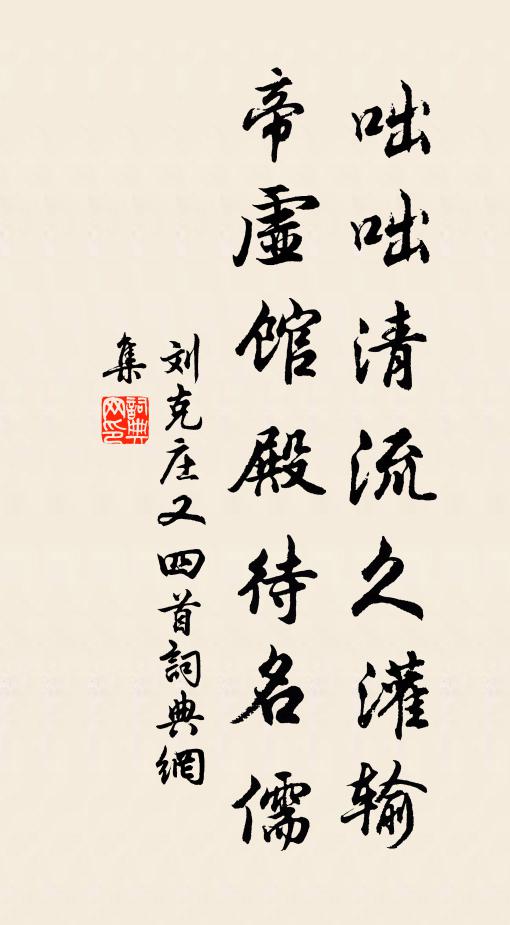 咄咄清流久灌输
帝虚馆殿待名儒
刘克庄又四首詞典網
集
詞典網印